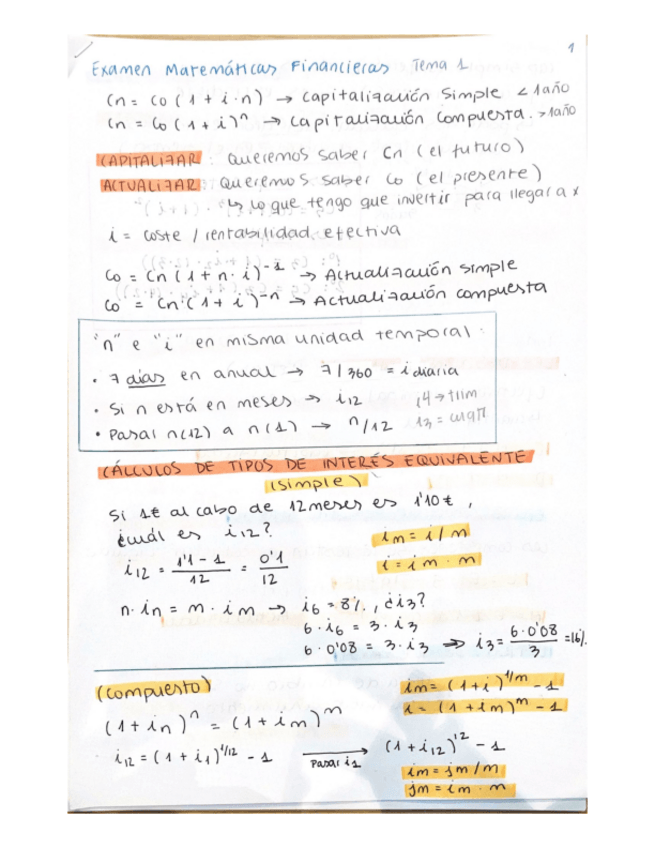 1
Examen Matemáticas Financieras Tema 1
Cn = Co (1 + i · n) → Capitalización Simple < 1 año
Cn = Co (1 + i)ⁿ → Capitalización Compuesta. > 1 año
CAPITALIZAR: Queremos saber Cn (el futuro)
ACTUALIZAR: Queremos saber Co (el presente)
↳ Lo que tengo que invertir para llegar a x
i = coste / rentabilidad efectiva
Co = Cn (1 + n · i)⁻¹ → Actualización simple
Co = Cn · (1 + i)⁻ⁿ → Actualización compuesta
"n" e "i" en misma unidad temporal:
• 7 días en anual → 7/360 = i diaria
• Si n está en meses → i₁₂ , 4 → trim
• Pasar n(12) a n(1) → n/12 i3 = cuatri
CÁLCULOS DE TIPOS DE INTERÉS EQUIVALENTE
(simple)
Si 1€ al cabo de 12 meses es 1'10 €,
¿cuál es i₁₂? im = i / m
i₁₂ = 1'1 - 1 / 12 = 0'1 / 12 i = im · m
n · in = m · im → i₆ = 8%, ¿i₃?
6 · i₆ = 3 · i₃
6 · 0'08 = 3 · i₃ ⇒ i₃ = 6 · 0'08 / 3 = 16%
(compuesto) im = (1 + i)^1/m - 1
i = (1 + im)^m - 1
(1 + in)ⁿ = (1 + im)^m
i₁₂ = (1 + i₁)^1/12 - 1 Pasar i₁ → (1 + i₁₂)¹² - 1
im = jm / m
jm = im · m